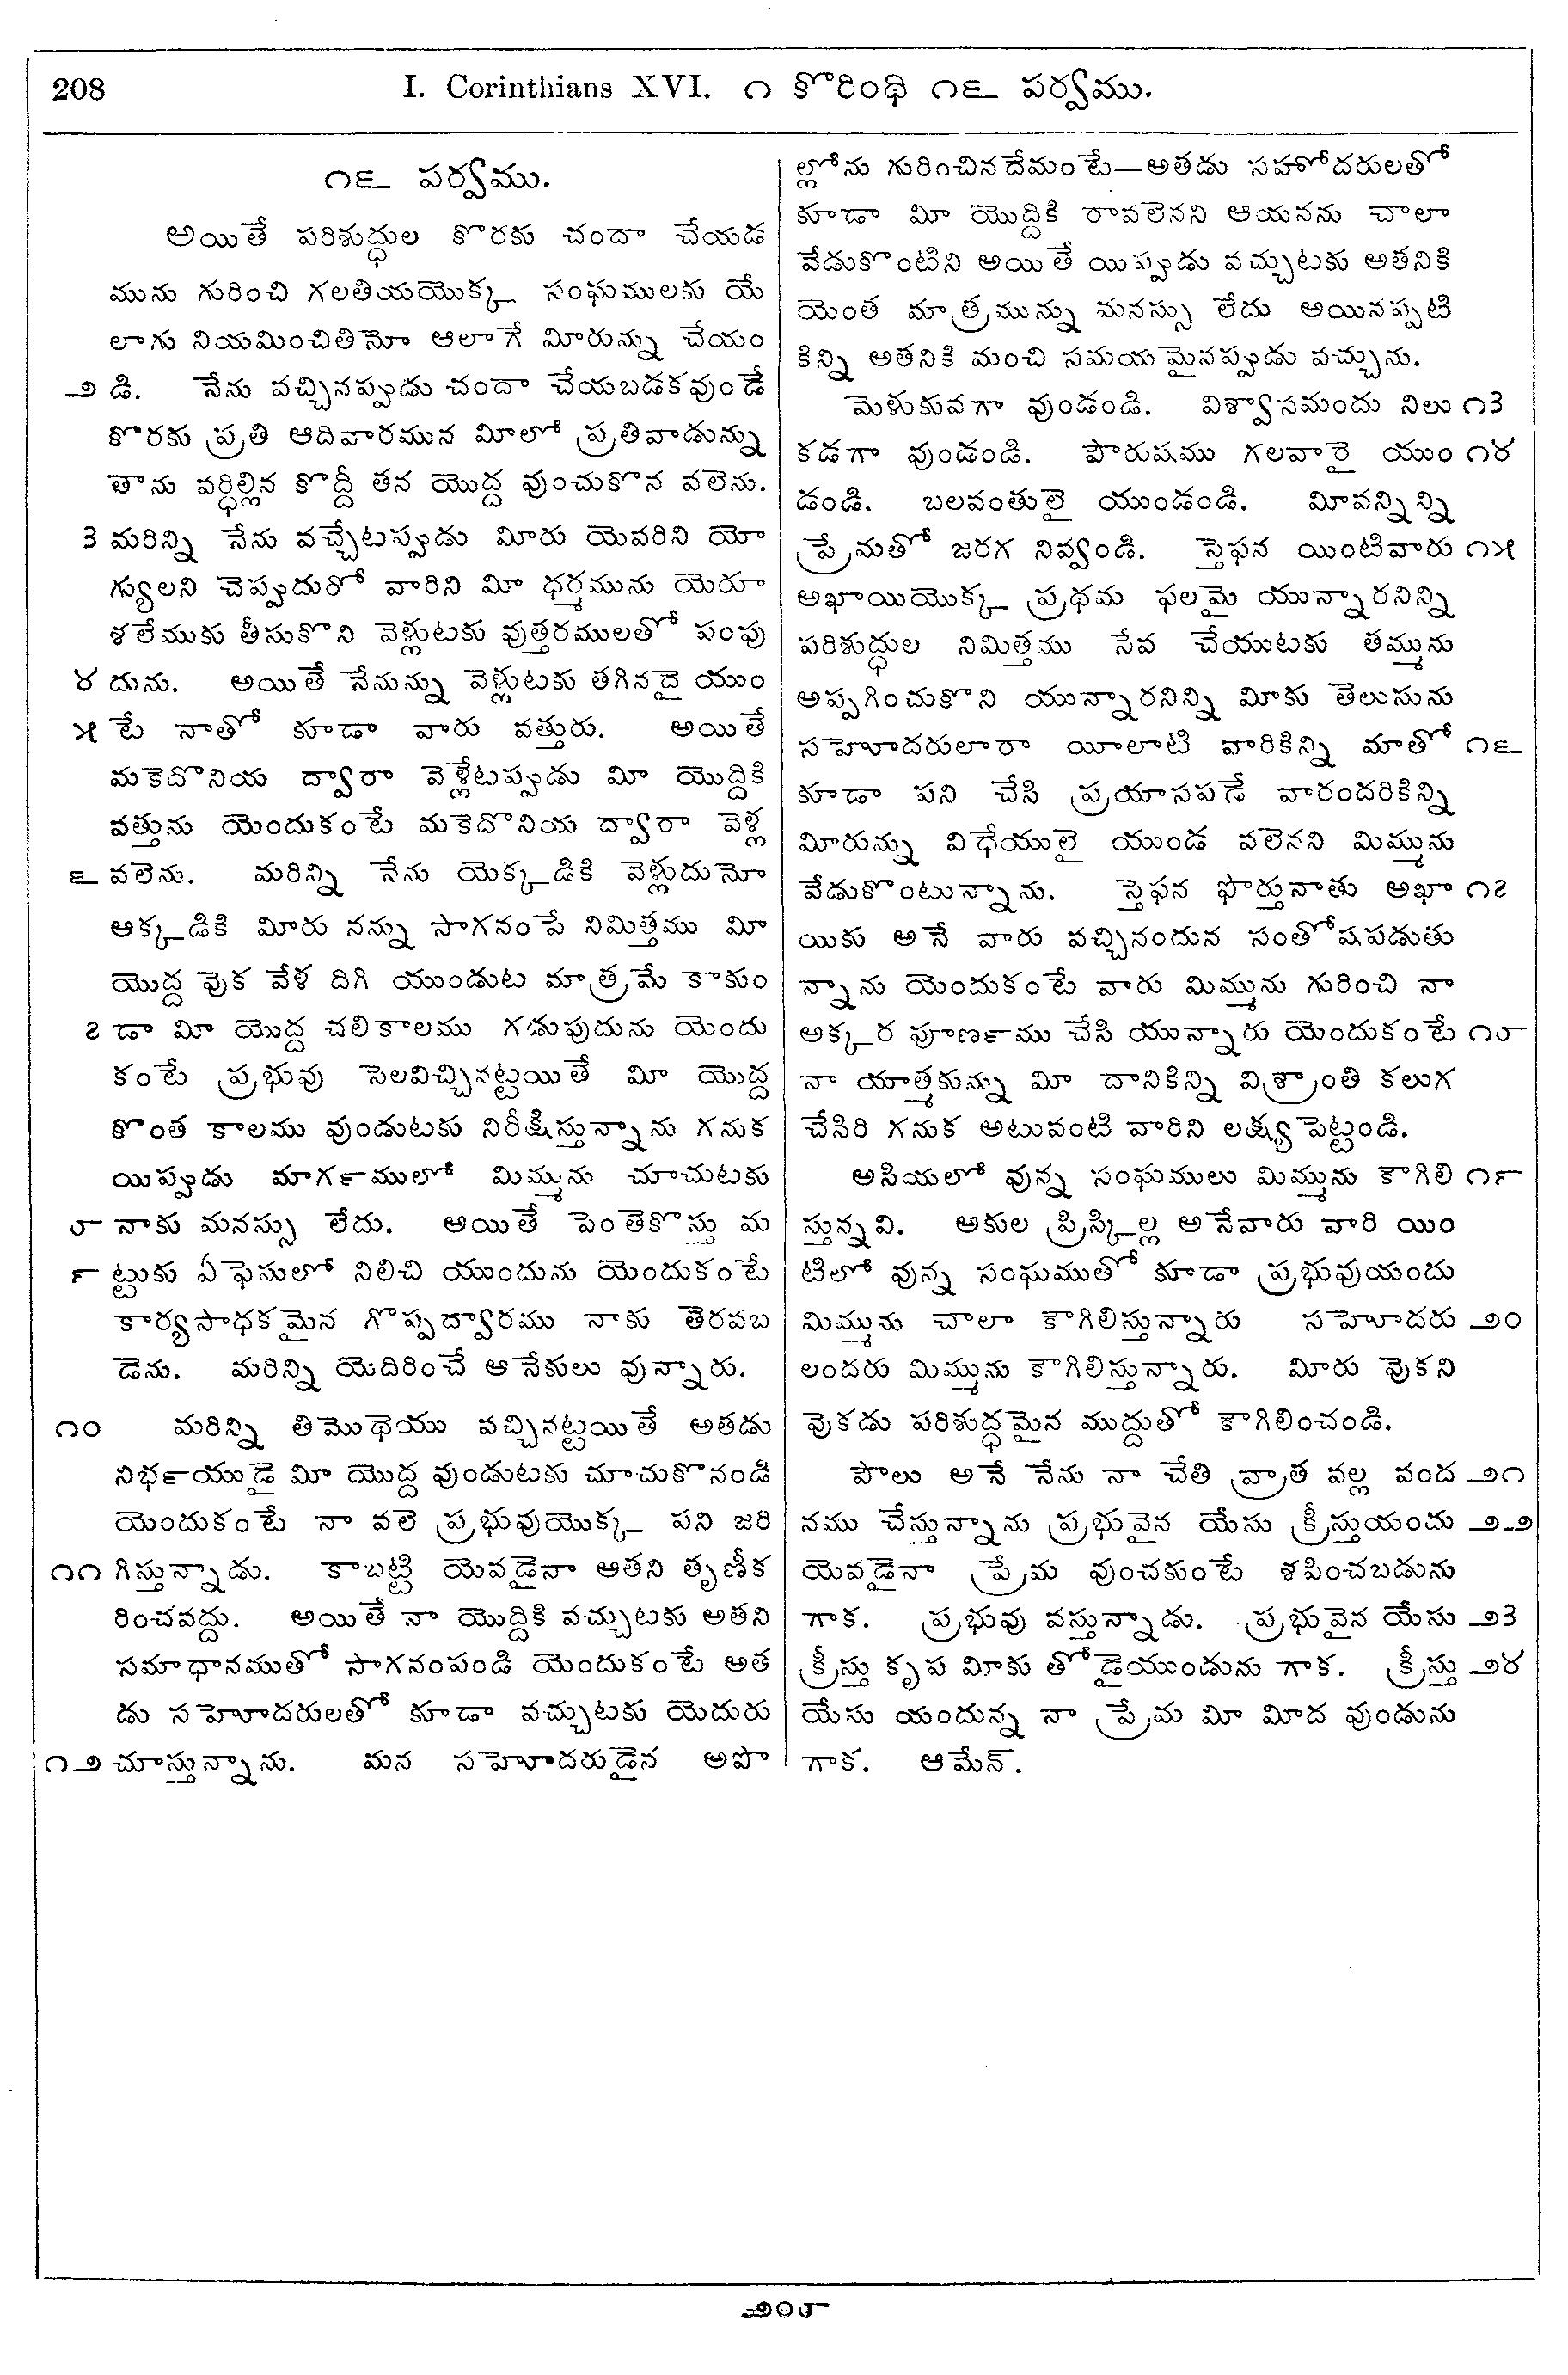 208 I. Corinthians XVI. ౧ కొరింథి ౧౬ పర్వము.
౧౬ పర్వము.
అయితే పరిశుద్ధుల కొరకు చందా చేయడ
మును గురించి గలతియయొక్క సంఘములకు యే
లాగు నియమించితినో ఆలాగే మీరున్ను చేయం
౨ డి. నేను వచ్చినప్పుడు చందా చేయబడకవుండే
కొరకు ప్రతి ఆదివారమున మీలో ప్రతివాడున్ను
తాను వర్ధిల్లిన కొద్దీ తన యొద్ద వుంచుకొన వలెను.
౩ మరిన్ని నేను వచ్చేటప్పుడు మీరు యెవరిని యో
గ్యులని చెప్పుదురో వారిని మీ ధర్మమును యెరూ
శలేముకు తీసుకొని వెళ్లుటకు వుత్తరములతో పంపు
౪ దును. అయితే నేనున్ను వెళ్లుటకు తగినదై యుం
౫ టే నాతో కూడా వారు వత్తురు. అయితే
మకెదొనియ ద్వారా వెళ్లేటప్పుడు మీ యొద్దికి
వత్తును యెందుకంటే మకెదొనియ ద్వారా వెళ్ల
౬ వలెను. మరిన్ని నేను యెక్కడికి వెళ్లుదునో
ఆక్కడికి మీరు నన్ను సాగనంపే నిమిత్తము మీ
యొద్ద వుక వేళ దిగి యుండుట మాత్రమే కాకుం
౭ డా మీ యొద్ద చలికాలము గడుపుదును యెందు
కంటే ప్రభువు సెలవిచ్చినట్టయితే మీ యొద్ద
కొంత కాలము వుండుటకు నిరీక్షిస్తున్నాను గనుక
యిప్పుడు మార్గములో మిమ్మును చూచుటకు
౮ నాకు మనస్సు లేదు. అయితే పెంతెకొస్తు మ
౯ ట్టుకు ఏఫెసులో నిలిచి యుందును యెందుకంటే
కార్యసాధకమైన గొప్పద్వారము నాకు తెరవబ
డెను. మరిన్ని యెదిరించే అనేకులు వున్నారు.
౧౦ మరిన్ని తిమొథెయు వచ్చినట్టయితే అతడు
నిర్భయుడై మీ యొద్ద వుండుటకు చూచుకొనండి
యెందుకంటే నా వలె ప్రభువుయొక్క పని జరి
౧౧ గిస్తున్నాడు. కాబట్టి యెవడైనా అతని తృణీక
రించవద్దు. అయితే నా యొద్దికి వచ్చుటకు అతని
సమాధానముతో సాగనంపండి యెందుకంటే అత
డు సహోదరులతో కూడా వచ్చుటకు యెదురు
౧౨ చూస్తున్నాను. మన సహోదరుడైన అపొ
ల్లోను గురించినదేమంటే—అతడు సహోదరులతో
కూడా మీ యొద్దికి రావలెనని ఆయనను చాలా
వేడుకొంటిని అయితే యిప్పుడు వచ్చుటకు అతనికి
యెంత మాత్రమున్ను మనస్సు లేదు అయినప్పటి
కిన్ని అతనికి మంచి సమయమైనప్పుడు వచ్చును.
మెళుకువగా వుండండి. విశ్వాసమందు నిలు ౧౩
కడగా వుండండి. పౌరుషము గలవారై యుం ౧౪
డండి. బలవంతులై యుండండి. మీవన్నిన్ని
ప్రేమతో జరగ నివ్వండి. స్తెఫన యింటివారు ౧౫
అఖాయియొక్క ప్రథమ ఫలమై యున్నారనిన్ని
పరిశుద్ధుల నిమిత్తము సేవ చేయుటకు తమ్మును
అప్పగించుకొని యున్నారనిన్ని మీకు తెలుసును
సహెూదరులారా యీలాటి వారికిన్ని మాతో ౧౬
కూడా పని చేసి ప్రయాసపడే వారందరికిన్ని
మీరున్ను విధేయులై యుండ వలెనని మిమ్మును
వేడుకొంటున్నాను. స్తెఫన ఫొర్తునాతు అఖా ౧౭
యికు అనే వారు వచ్చినందున సంతోషపడుతు
న్నాను యెందుకంటే వారు మిమ్మును గురించి నా
అక్కర పూర్ణము చేసి యున్నారు యెందుకంటే ౧౮
నా యాత్మకున్ను మీ దానికిన్ని విశ్రాంతి కలుగ
చేసిరి గనుక అటువంటి వారిని లక్ష్య పెట్టండి.
అసియలో వున్న సంఘములు మిమ్మును కౌగిలి ౧౯
స్తున్నవి. అకుల ప్రిస్కిల్ల అనేవారు వారి యిం
టిలో వున్న సంఘముతో కూడా ప్రభువుయందు
మిమ్మును చాలా కౌగిలిస్తున్నారు సహోదరు ౨౦
లందరు మిమ్మును కౌగిలిస్తున్నారు. మీరు వుకని
వుకడు పరిశుద్ధమైన ముద్దుతో కౌగిలించండి.
పౌలు అనే నేను నా చేతి వ్రాత వల్ల వంద ౨౧
నము చేస్తున్నాను ప్రభువైన యేసు క్రీస్తుయందు ౨౨
యెవడైనా ప్రేమ వుంచకుంటే శపించబడును
గాక. ప్రభువు వస్తున్నాడు. ప్రభువైన యేసు ౨౩
క్రీస్తు కృప మీకు తోడైయుండును గాక. క్రీస్తు ౨౪
యేసు యందున్న నా ప్రేమ మీ మీద వుండును
గాక. ఆమేన్.
౨౦౮